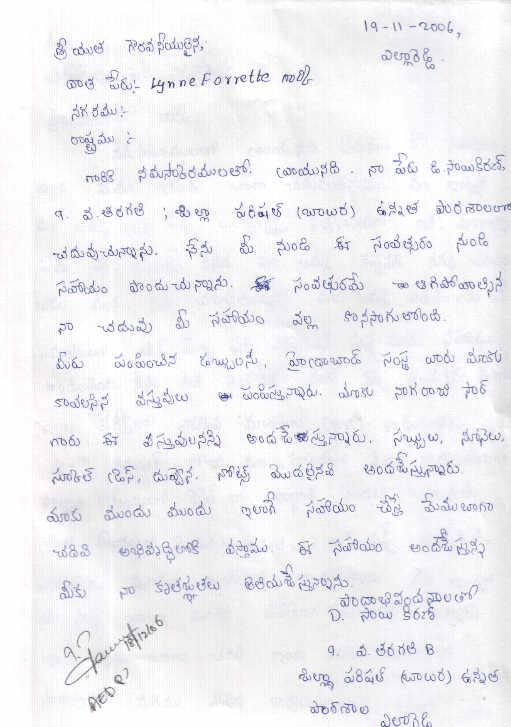 19-11-2006,
ఎల్లారెడ్డి.
శ్రీయుత గౌరవనీయులైన,
దాత పేరు:- Lynne Forrette గారికి
నగరము:-
రాష్ట్రము :-
గారికి నమస్కారములతో. వ్రాయునది. నా పేరు డి. సాయికిరణ్,
9. వ. తరగతి ; జిల్లా పరిషత్ (బాలుర) ఉన్నత పాఠశాలలో
చదువుచున్నాను. నేను మీ నుండి ఈ సంవత్సరం నుండి
సహాయం పొందుచున్నాను. ఈ సంవత్సరమే ఆగిపోవాల్సిన
నా చదువు మీ సహాయం వల్ల కొనసాగుతోంది.
మీరు పంపించిన డబ్బులను, హైదరాబాద్ సంస్థ వారు మాకు
కావలసిన వస్తువులు పంపిస్తున్నారు. మాకు నాగరాజు సార్
గారు ఈ వస్తువులనన్ని అందజేస్తున్నారు. సబ్బులు, నూనెలు,
స్కూల్ డ్రెస్, దువ్వెన. నోట్స్ మొదలైనవి అందజేస్తున్నారు.
మాకు ముందు ముందు ఇలాగే సహాయం చేస్తే మేము బాగా
చదివి అభివృద్ధిలోకి వస్తాము. ఈ సహాయం అందజేస్తున్న
మీకు నా కృతజ్ఞతలు తెలియజేస్తున్నాను.
పాదాభివందనాలతో
D. సాయి కిరణ్
9. వ. తరగతి B
జిల్లా పరిషత్ (బాలుర) ఉన్నత
పాఠశాల
ఎల్లారెడ్డి
18/12/06